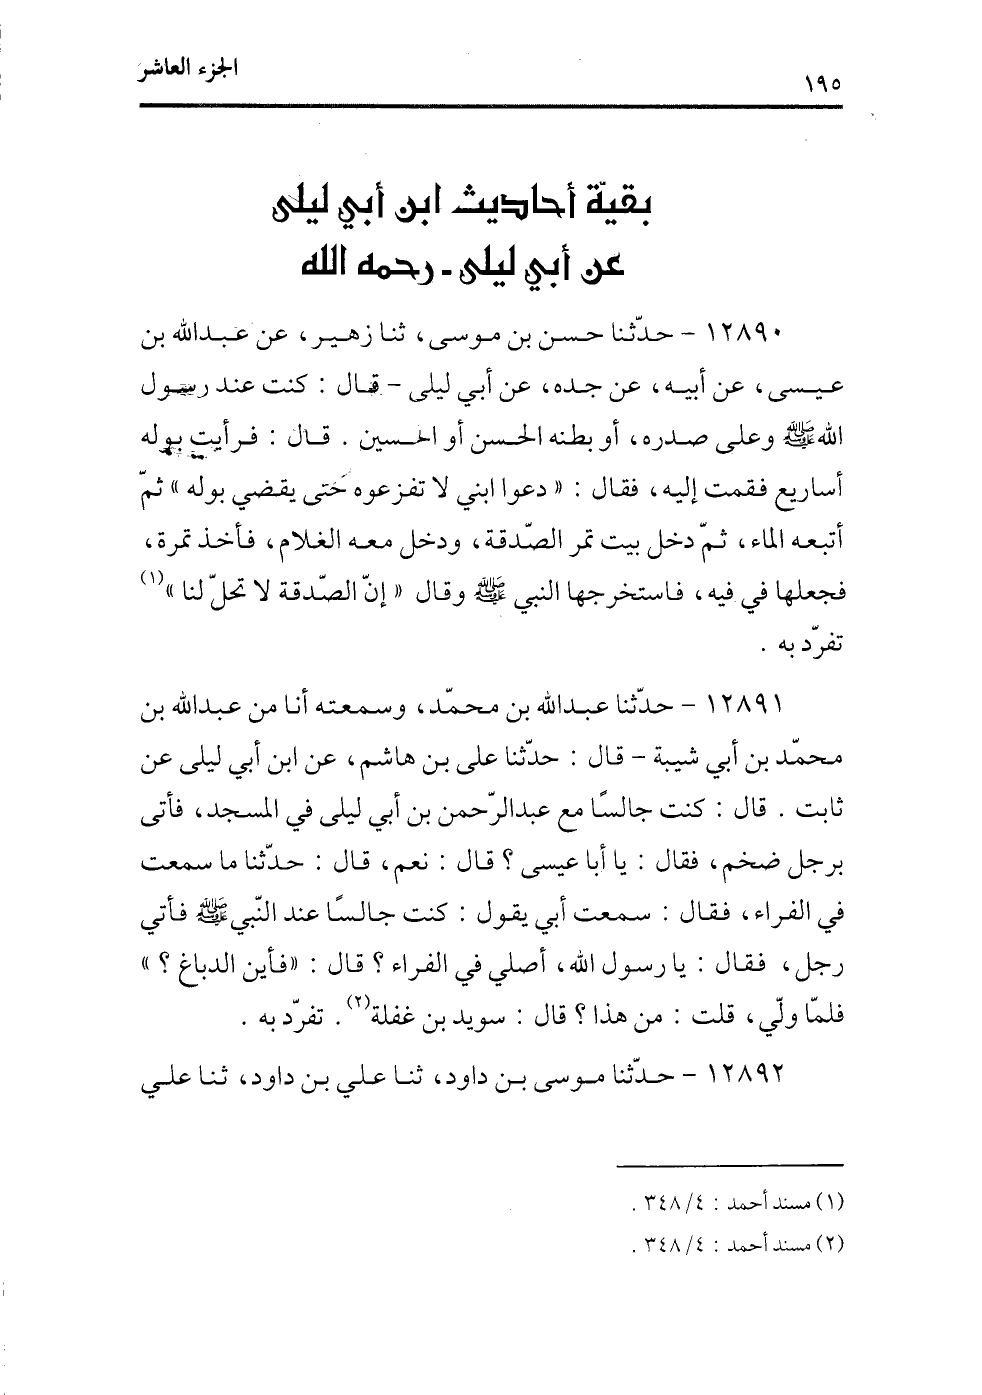 ١٩٥
الجزء العاشر
بقيّة أحاديث ابن أبي ليلى
عن أبي ليلى - رحمه الله
١٢٨٩٠ - حدّثنا حسن بن موسى، ثنا زهير، عن عبدالله بن
عيسى، عن أبيه، عن جده، عن أبي ليلى - قال : كنت عند رسول
الله ﷺ وعلى صدره، أو بطنه الحسن أو الحسين . قال : فرأيت بوله
أساريع فقمت إليه، فقال : « دعوا ابني لا تفزعوه حَتى يقضي بوله » ثمّ
أتبعه الماء، ثمّ دخل بيت تمر الصّدقة، ودخل معه الغلام، فأخذ تمرة،
فجعلها في فيه، فاستخرجها النبي ﷺ وقال « إنّ الصّدقة لا تحلّ لنا »(١)
تفرّد به .
١٢٨٩١ - حدّثنا عبدالله بن محمّد، وسمعته أنا من عبدالله بن
محمّد بن أبي شيبة - قال : حدّثنا على بن هاشم، عن ابن أبي ليلى عن
ثابت . قال : كنت جالسًا مع عبدالرّحمن بن أبي ليلى في المسجد، فأتى
برجل ضخم، فقال : يا أبا عيسى ؟ قال : نعم، قال : حدّثنا ما سمعت
في الفراء، فقال : سمعت أبي يقول : كنت جالسًا عند النّبي ﷺ فأتي
رجل، فقال : يا رسول الله، أصلي في الفراء ؟ قال : «فأين الدباغ ؟ »
فلمّا ولّي، قلت : من هذا ؟ قال : سويد بن غفلة(٢). تفرّد به .
١٢٨٩٢ - حدّثنا موسى بن داود، ثنا علي بن داود، ثنا علي
(١) مسند أحمد : ٣٤٨/٤ .
(٢) مسند أحمد : ٣٤٨/٤ .